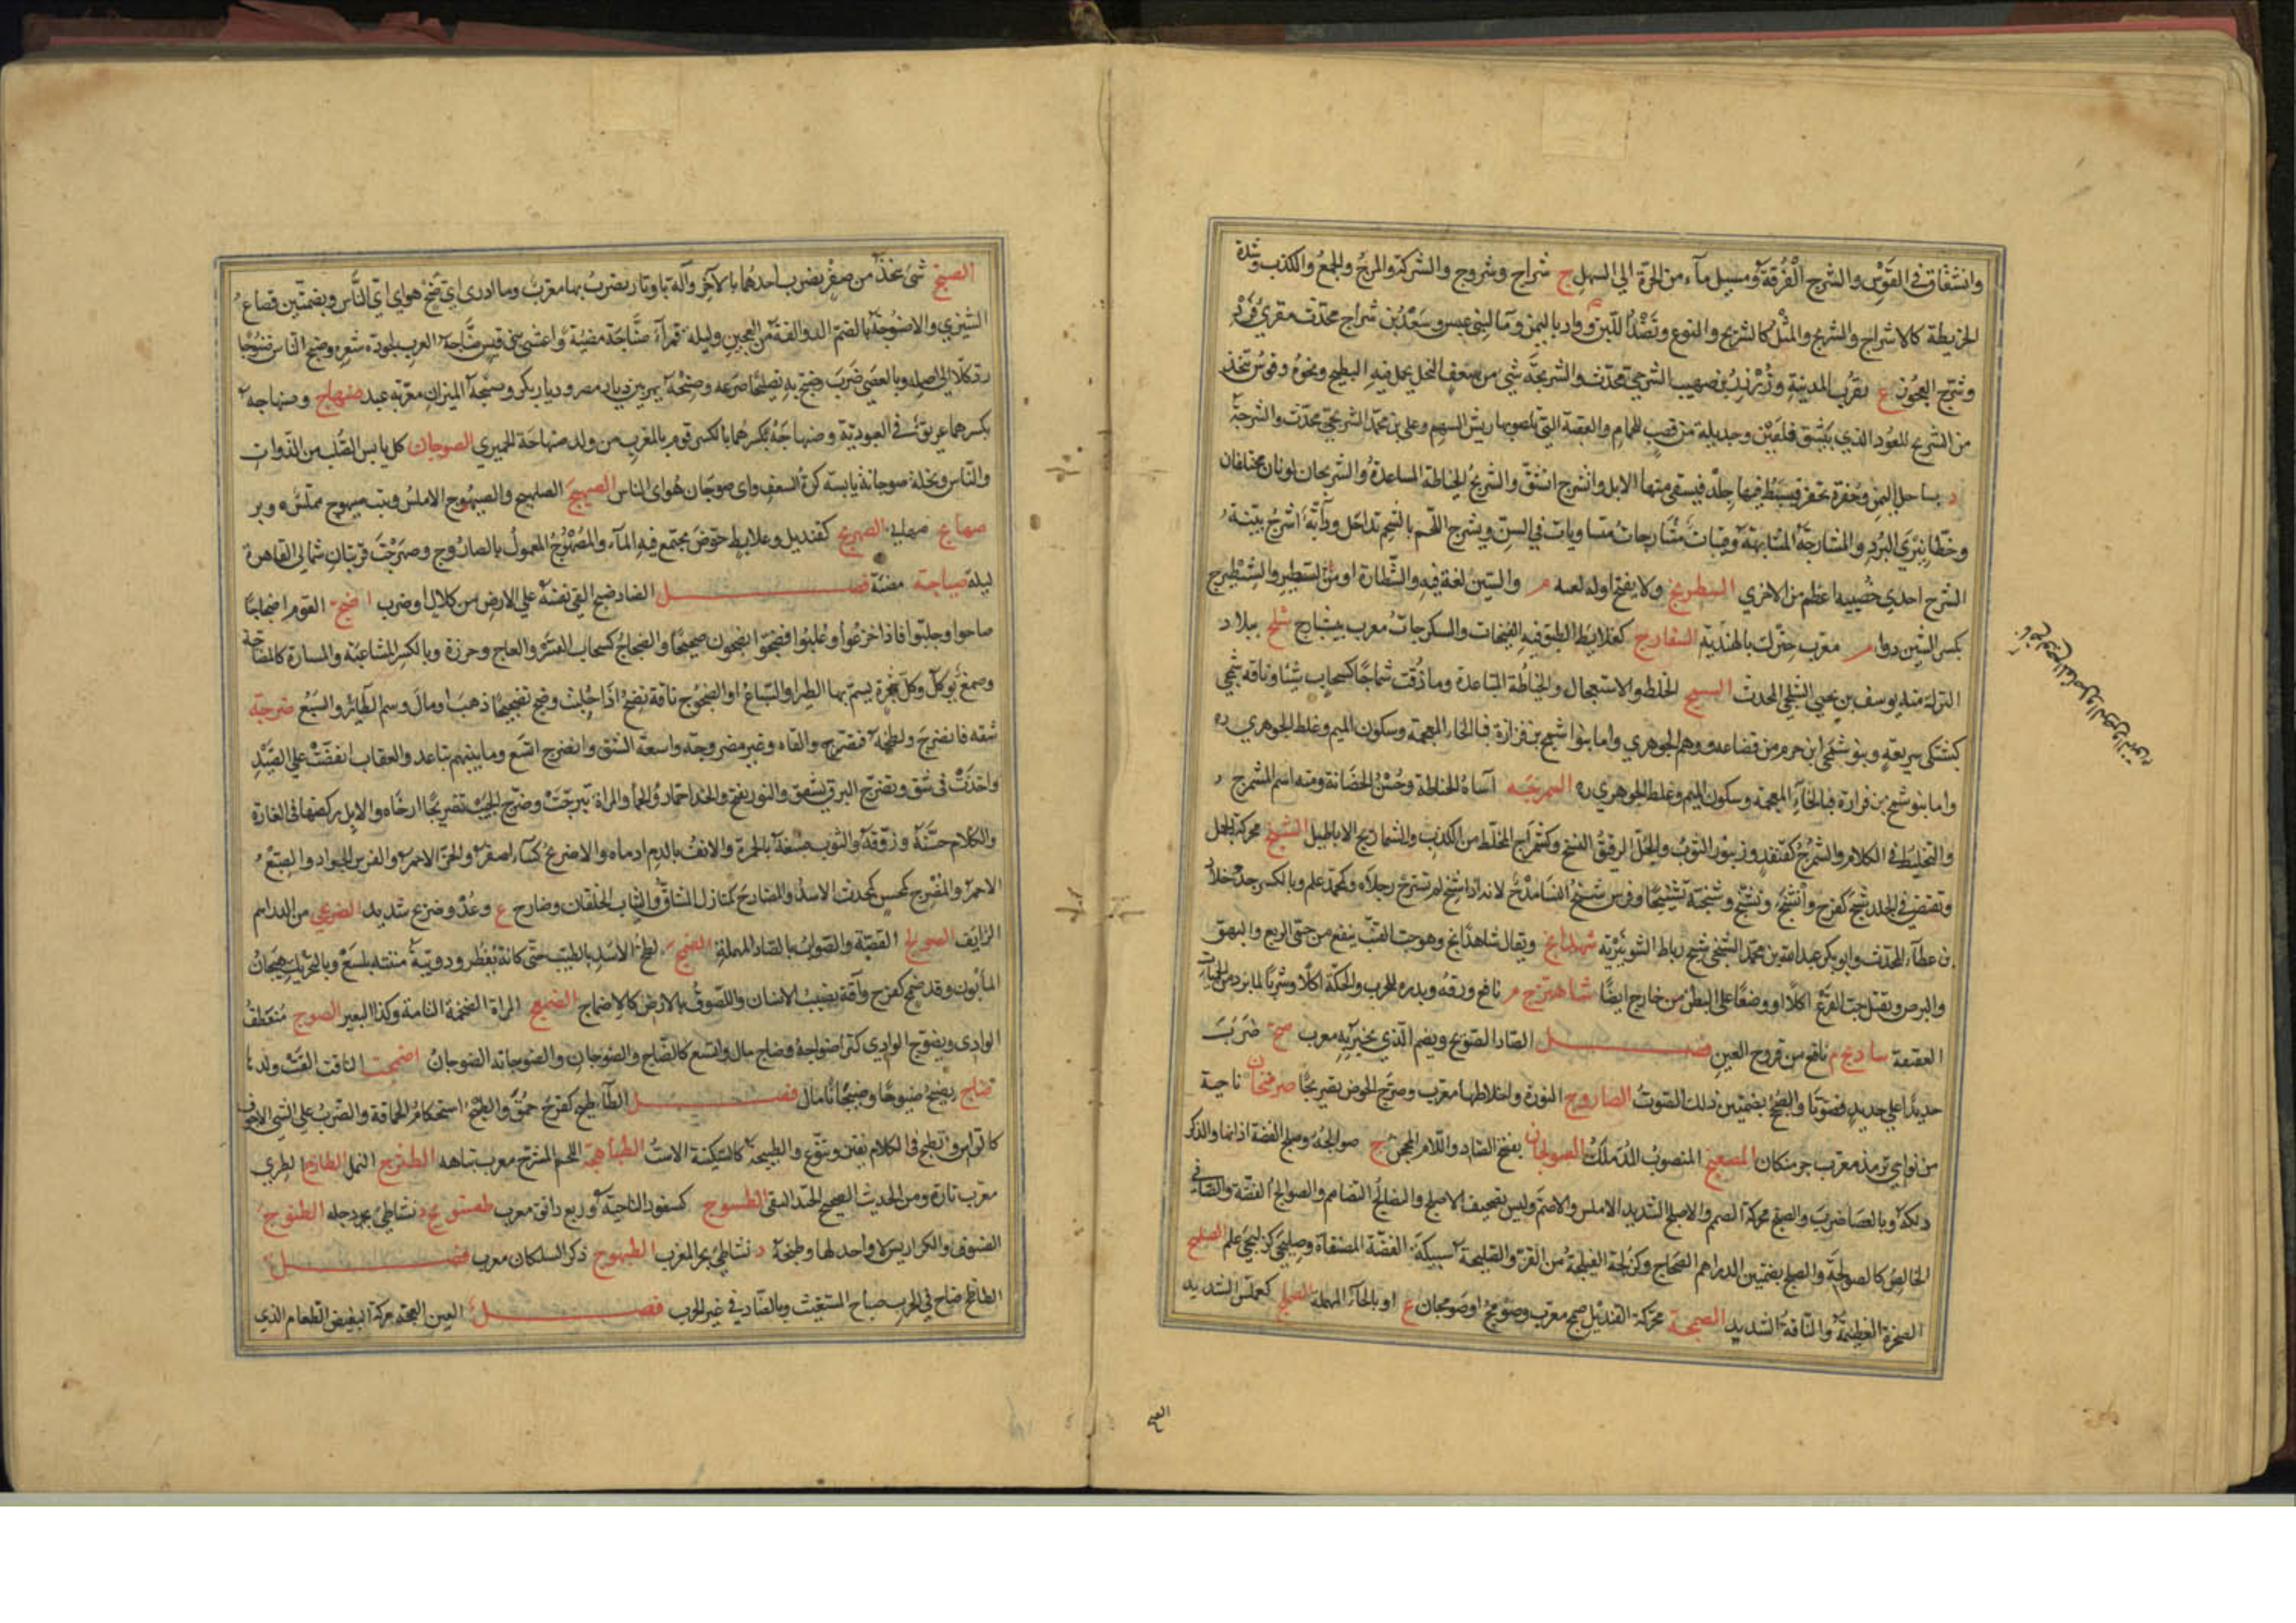 وانشقاق في القوس والشرج الفرقة ومسيل ماء من الحرة الي السهل ج شراج وشروج والشركة والمزج والجمع والكذب وشدة
الخريطة كالاشراج والتشريج والمثل كالشريج والنوع ونضد اللبن وواد باليمن وماء لبني عبس وسعد بن شراج محدث مقري فرد
وشرج العجوز ع بقرب المدينة وزرزور بن صهيب الشرجي محدث والشريجة شي من سعف النخل يحمل فيه البطيخ ونحوه وقوس تتخذ
من الشريج للعود الذي يشق فلقين وجديلة من قصب للحمام والعقبة التي يلصق بها ريش السهم وعلي بن محمد الشريجي محدث والشرجة
د بساحل اليمن وحفرة تحفر فيبسط فيها جلد فيسقي منها الابل وانشرج انشق والتشريج الخياطة المتباعدة والشريجان لونان مختلفان
وخطا نيري البرد والمشارجة المشابهة وفتيات مشارجات متساويات في السن وتشرج اللحم بالشحم تداخل ودابة اشرج بينة
الشرج احدي خصييه اعظم من الاخري الشطرنج ولا يفتح اوله لعبة م والسين لغة فيه والشطارة او من التسطير والشيطرج
بكسر الشين دواء م معرب جترك بالهندية الشفارج كعلابط الطبق فيه الفيخات والسكرجات معرب بيشيارج شلج ببلاد
الترك منه يوسف بن يحيى الشلجي المحدث الشمج الخلط والاستعجال والخياطة المتباعدة وما ذقت شماجا كسحاب شيئا وناقة شمجي
كبشكي سريعة وبنو شمجي ابن جرم من قضاعة ووهم الجوهري واما بنو شمخ بن فزارة فبالخاء المعجمة وسكون الميم وغلط الجوهري ره
واما بنو شمخ بن فزارة فبالخاء المعجمة وسكون الميم وغلط الجوهري ره الشمرجة اساءة الخياطة وحسن الحضانة ومنه اسم المشمرج و
والتخليط في الكلام والشمرج كقنفذ وزنبور الثوب والجل الرقيق النسج وكشمراج المخلط من الكذب والشماريج الاباطيل الشنج محركة الجمل
وتقبض في الجلد شنج كفرح وانشنج وتشنج وشنجته تشنيجا وفرس شنج النسا مدح لانه اذا شنج لم تسترخ رجلاه وكمحمد علم وبالكسر جد خلاد
بن عطاء المحدث وابو بكر عبد الله بن محمد الشنجي شيخ رباط الشونيزية شهدانج ويقال شاهدانج وهو حب القنب ينفع من حمى الربع والبهق
والبرص ويقتل حب القرع اكلا ووضعا على البطن من خارج ايضا شاهترج م نافع ورقه وبزره للجرب والحكة اكلا وشربا لما يرد من الحميات
العتيقة سادنج م نافع من قروح العين فصل الصاد الصوبج ويضم الذي يخبز به معرب صج ضرب
حديدا على حديد فصوتا والصجج بضمتين ذلك الصوت الصاروج النورة واخلاطها معرب وصرج الحوض تصريجا صرمنجان ناحية
من نواحي ترمذ معرب جرمنكان المصعنج المنصوب المدملك الصولجان بفتح الصاد واللام المحجن ج صوالجة وصلج الفضة اذابها والذكر
دلكه وبالعصا ضرب والصلج محركة الصمم والاصلج الشديد الاملس والاصم وليس تصحيف الاصلخ والتصالج التصامم والصوالج الفضة والصافي
الخالص كالصولجة والصلج بضمتين الدراهم الصحاح وكزلجة الفيلجة من القز والصليجة سبيكة الفضة المصفاة وصليجى كزليجى علم الصلهج
الصخرة العظيمة والناقة الشديدة الصمجة محركة القنديل ج صمج معرب وصومج او صومجان ع او بالحاء المهملة الصملج كعملس الشديد
الصنج شئ يتخذ من صفر يضرب احدهما بالاخر وآلة باوتار يضرب بها معرب وما ادرى اي صنج هو اي اي الناس وبضمتين قصاع
الشيزي والاصنوجة بالضم الدوالقة من العجين وليلة قمراء صناجة مضيئة واعشى بني قيس صناجة العرب لجودة شعره وصنج الناس صنوجا
رد كلا الى اصله وبالعصى ضرب وصنج به تصنيجا صرعه وصنجة نهر بين ديار مصر وديار بكر وصنجة الميزان معربه عبد صنهاج وصنهاجة
بكسرهما عريق في العبودية وصنهاجة بكسرهما بالكسر قوم بالمغرب من ولد صنهاجة الحميري الصوجان كل يابس الصلب من الدواب
والناس ونخلة صوجانة يابسة كزة السعف واي صوجان هو اي الناس الصيهج الصليهج والصيهوج الاملس وبيت صيهوج مملس و وبر
صهابج صهابي الصهريج كقنديل وعلابط حوض يجتمع فيه الماء والمصهرج المعمول بالصاروج وصهرجت قريتان شمالي القاهرة
ليلة صياجة مضيئة فصل الضاد ضبج القى نفسه على الارض من كلال او ضرب اضج القوم اضجاجا
صاحوا وجلبوا فاذا جزعوا وغلبوا فضجوا يضجون ضجيجا والضجاج كسحاب القسر والعاج وخرزة وبالكسر المشاغبة والمشارة كالمضاجة
وصمغ يؤكل وكل شجرة يسم بها الطير او السباع او الضجوج ناقة تضج اذا حلبت وضجج تضجيجا ذهب او مال وسم الطائر والسبع ضرجه
شقه فانضرج ولطخه فتضرج والقاه وعين مضروجة واسعة الشق وانضرج اتسع وما بينهم تباعد والعقاب انقضت على الصيد
واخذت في شق وتضرج البرق تشقق والنور تفتح والخد احمار والمراة تبرجت وضرج الجيب تضريجا ارخاه والابل ركضها في الغارة
والكلام حسنه وزوقه والثوب صبغه بالحمرة والانف بالدم ادماه والاضريج كساء اصفر والخز الاحمر والفرس الجواد والصبغ
الاحمر والمضرج كمحدث الاسد والمضارج كمنازل المشاق والثياب الخلقان وضارج ع وعدو ضريج شديد الضربجي من الدراهم
الزايف الصولج الفضة والصواب بالصاد المهملة الضمج لطخ الجسد بالطيب حتى كانه يقطر ودويبة منتنة تلسع وبالتحريك هيجان
المابون وقد ضمج كفرح وآفة تصيب الانسان واللصوق بالارض كالاضماج الضمعج المراة الضخمة التامة وكذا البعير الضوج منعطف
الوادي وتضوج الوادي كثر اضواجه وضاج مال واتسع كالضاج والضوجان والضوجانة الصوجان اضهجت الناقة القت ولدها
ضاج يضيج ضيوجا وضيجانا مال فصل الطاء طبج كفرح حمق والطبج استحكام الحماقة والضرب على الشي الاجوف
كالراس وتطبج في الكلام تفنن وتنوع والطبيجة كالسكينة الاست الطباهجة اللحم المشرح معرب تباهه الطثرج النمل الطازج الطري
معرب تازه ومن الحديث الصحيح الجيد النقي الطسوج كسفود الناحية وربع دانق معرب طفسونج د بشاطئ دجلة الطنوج
الصنوف والكراريس لا واحد لها وطنجة د بشاطئ بحر المغرب الطيهوج ذكر السلكان معرب فصل
الظاء ظاج صاح في الحرب صياح المستغيث وبالضاد في غير الحرب فصل العين العبجة محركة البغيض الطعام الذي